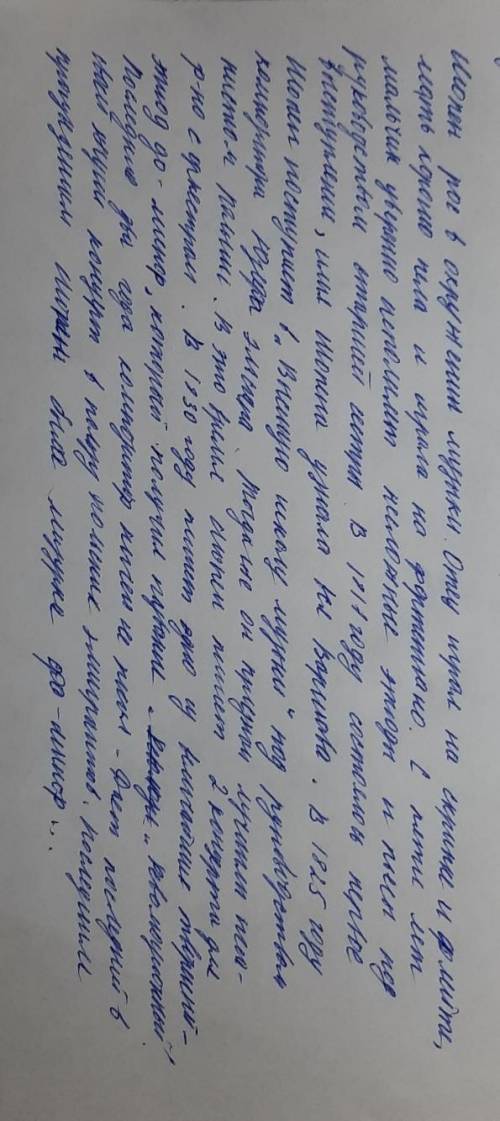 Шопен рос в окружении музыки. Отец играл на скрипке и флейте,
мать хорошо пела и играла на фортепиано. С пяти лет
мальчик уверенно исполняет несложные этюды и пьесы под
руководством старшей сестры. В 1818 году состоялось первое
выступление, имя Шопена узнала вся Варшава. В 1825 году
Шопен поступает в "Высшую школу музыки" под руководством
композитора Юзефа Эльснера. Тогда же он признан лучшим пиа-
нистом. В это время Шопен пишет 2 концерта для
р-но с оркестром. В 1830 году пишет одно из
этюд до-минор, который получил название "Революционный".
Последние два года композитор писал - Дает последний в
концерт в пользу польских эмигрантов. Последним
произведением Шопена была мазурка до-минор.